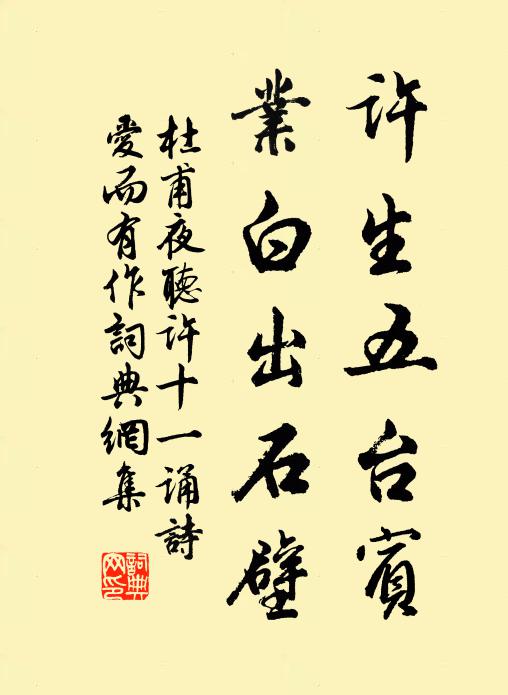 許生五台賓
業白出石壁
杜甫夜聽許十一誦詩
愛而有作詞典網集
詞典网印